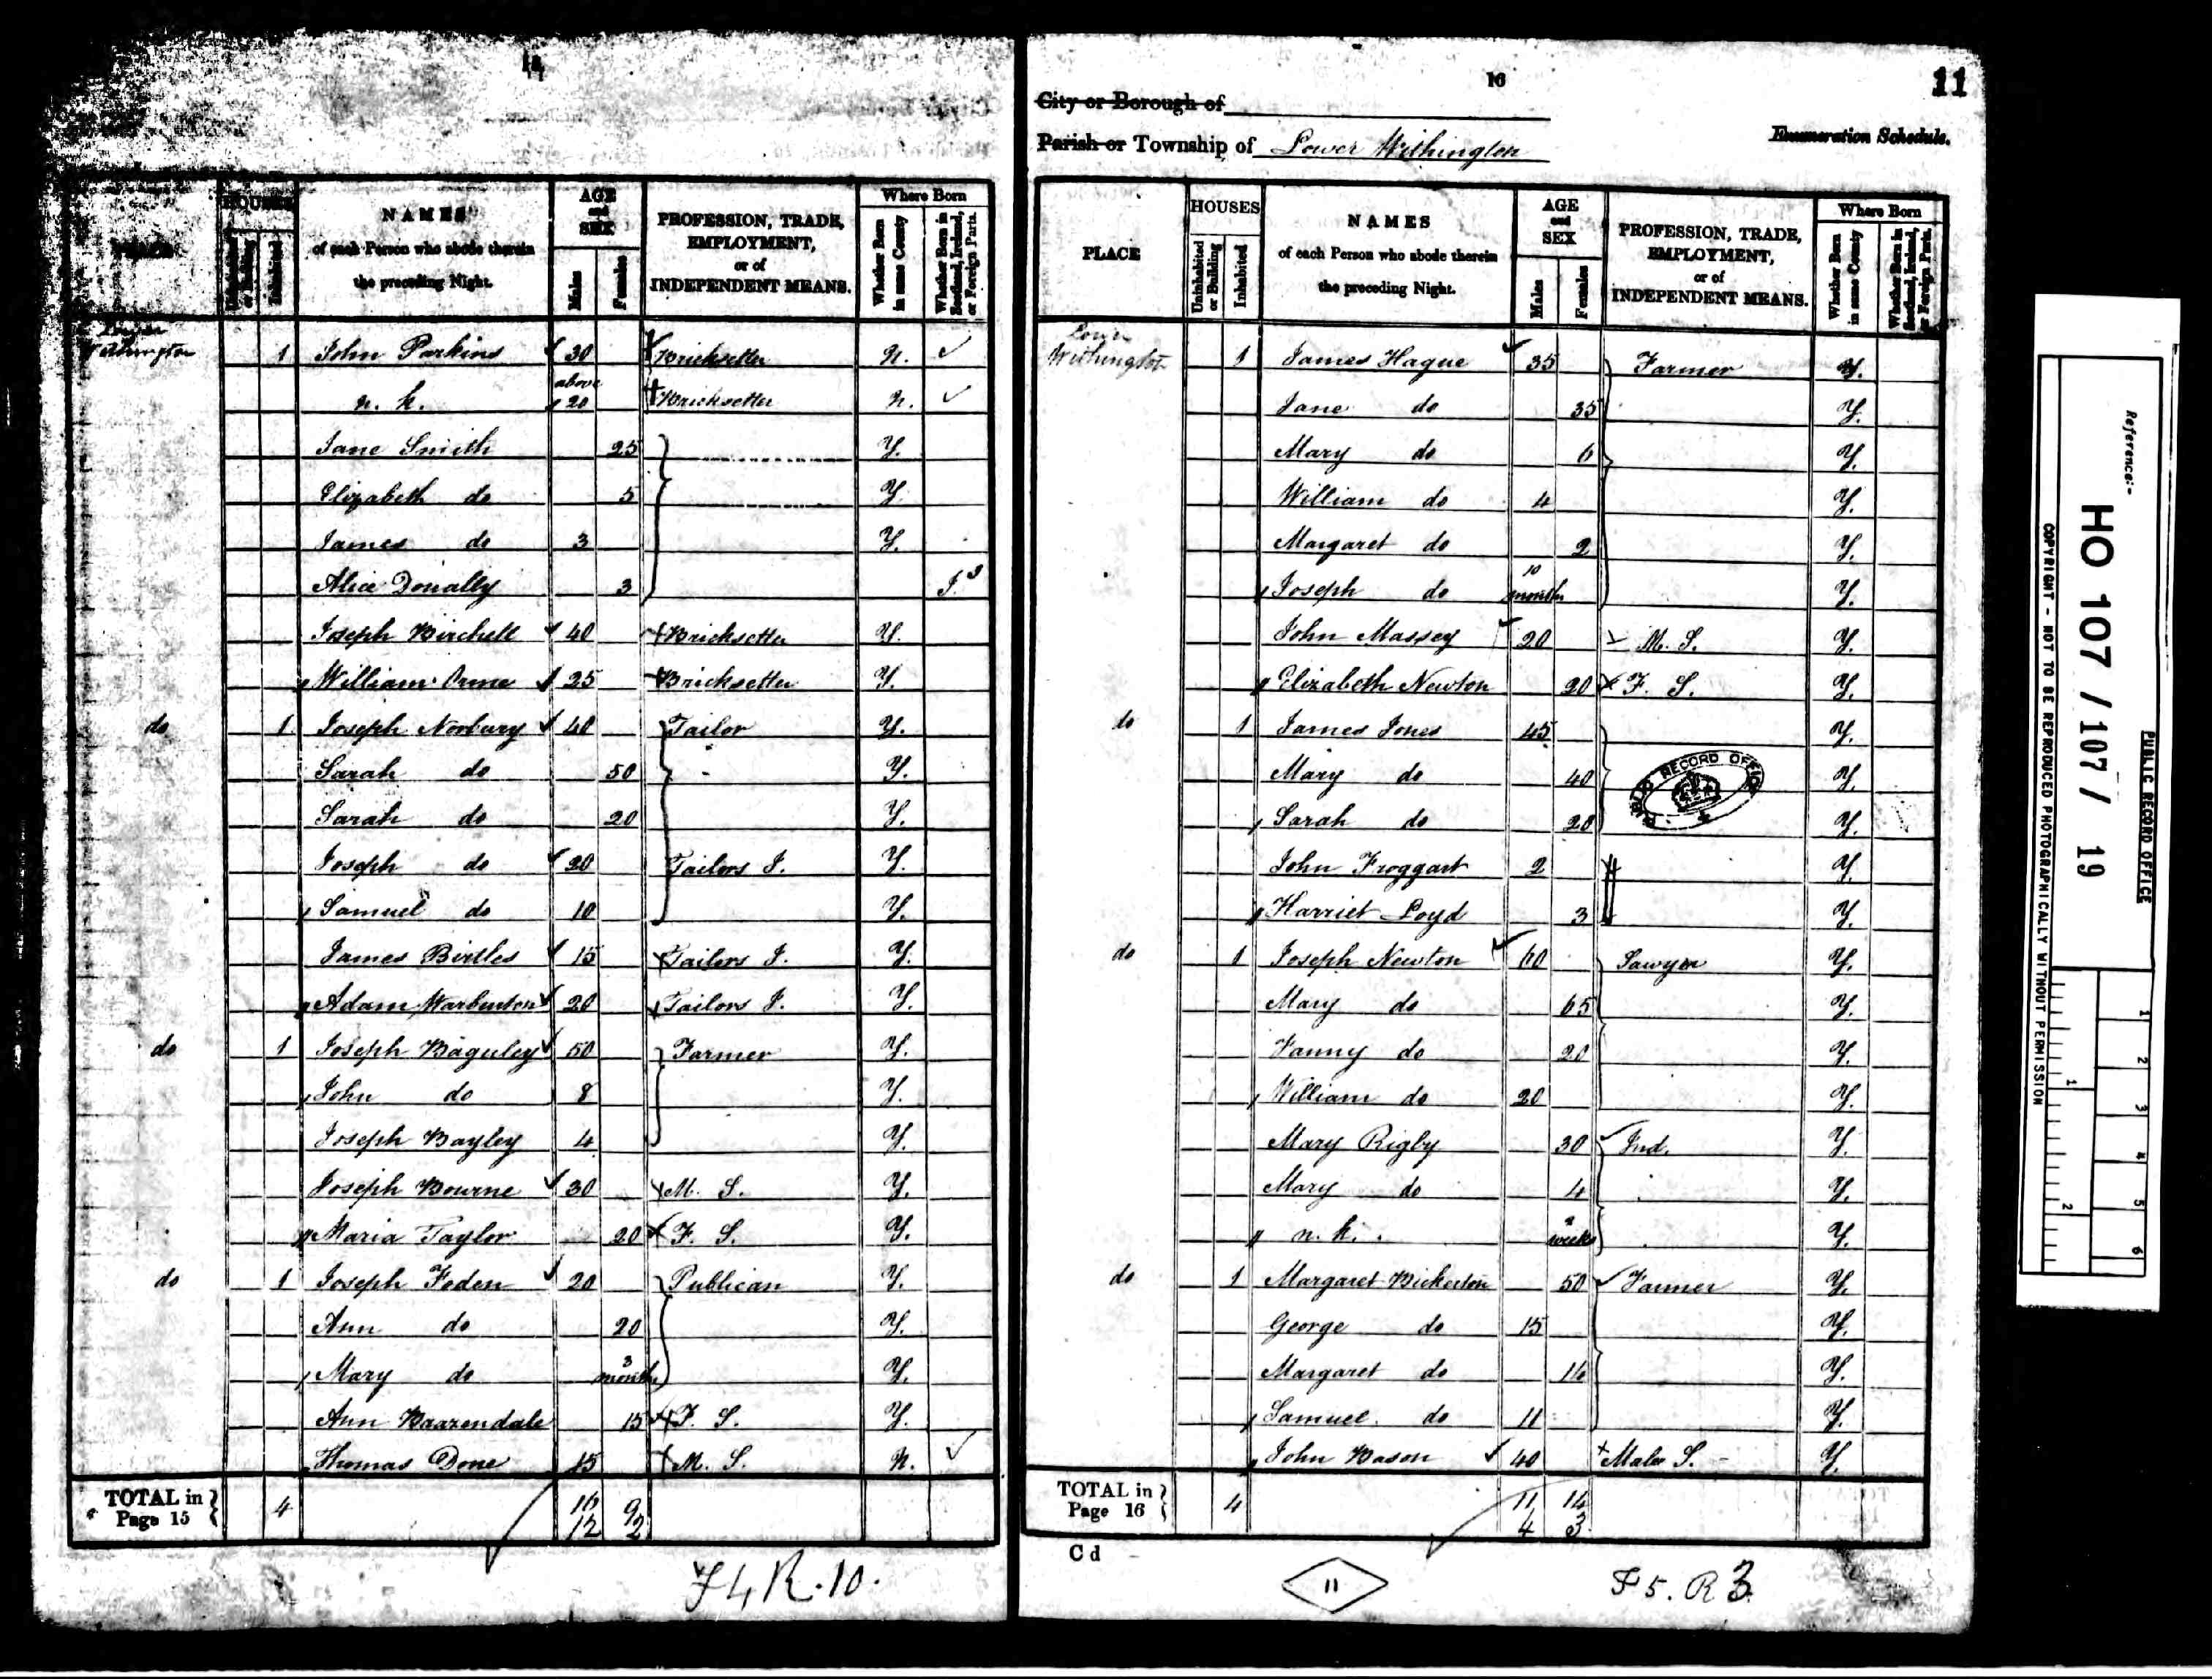 PLACE
HOUSES
Uninhabited or Building
Inhabited
NAMES
of each Person who abode therein
the preceding Night.
AGE and SEX
Males
Females
PROFESSION, TRADE, EMPLOYMENT, or of INDEPENDENT MEANS.
Where Born
Whether Born in same County
Whether Born in Scotland, Ireland, or Foreign Parts.
Lower Withington 1 John Parkins 30 Bricksetter N.
n. k. above 20 Bricksetter N.
Jane Smith 25 Y.
Elizabeth do 5 Y.
James do 3 Y.
Alice Donally 3 I.
Joseph Birchell 40 Bricksetter Y.
William Orme 25 Bricksetter Y.
do 1 Joseph Norbury 40 Tailor Y.
Sarah do 50 Y.
Sarah do 20 Y.
Joseph do 20 Tailors J. Y.
Samuel do 10 Y.
James Birtles 15 Tailors J. Y.
Adam Warburton 20 Tailors J. Y.
do 1 Joseph Baguley 50 Farmer Y.
John do 8 Y.
Joseph Bayley 4 Y.
Joseph Bourne 30 M. S. Y.
Maria Taylor 20 F. S. Y.
do 1 Joseph Foden 20 Publican Y.
Ann do 20 Y.
Mary do 3 months Y.
Ann 15 F. S. Y.
Thomas Done 15 M. S. N.
TOTAL in Page 15 4 16 9
12 2
F4 R. 10.
16
11
City or Borough of
Parish or Township of Lower Withington
Enumeration Schedule.
PLACE
HOUSES
Uninhabited or Building
Inhabited
NAMES
of each Person who abode therein
the preceding Night.
AGE and SEX
Males
Females
PROFESSION, TRADE, EMPLOYMENT, or of INDEPENDENT MEANS.
Where Born
Whether Born in same County
Whether Born in Scotland, Ireland, or Foreign Parts.
Lower Withington 1 James Hague 35 Farmer Y.
Jane do 35 Y.
Mary do 6 Y.
William do 4 Y.
Margaret do 2 Y.
Joseph do 10 months Y.
John Massey 20 M. S. Y.
Elizabeth Newton 20 F. S. Y.
do 1 James Jones 45 Y.
Mary do 40 Y.
Sarah do 20 Y.
John Froggart 2 Y.
Harriet Loyd 3 Y.
do 1 Joseph Newton 60 Sawyer Y.
Mary do 65 Y.
Fanny do 20 Y.
William do 20 Y.
Mary Rigby 30 Ind. Y.
Mary do 4 Y.
n. k. weeks Y.
do 1 Margaret Bickerton 50 Farmer Y.
George do 15 Y.
Margaret do 14 Y.
Samuel do 11 Y.
John Bason 40 Male S. Y.
TOTAL in Page 16 4 11 14
4 3
C d
11
F5. R 3
PUBLIC RECORD OFFICE
Reference:-
HO 107 / 107 / 19
PUBLIC RECORD OFFICE
COPYRIGHT - NOT TO BE REPRODUCED PHOTOGRAPHICALLY WITHOUT PERMISSION
1 2 3 4 5 6
1 2